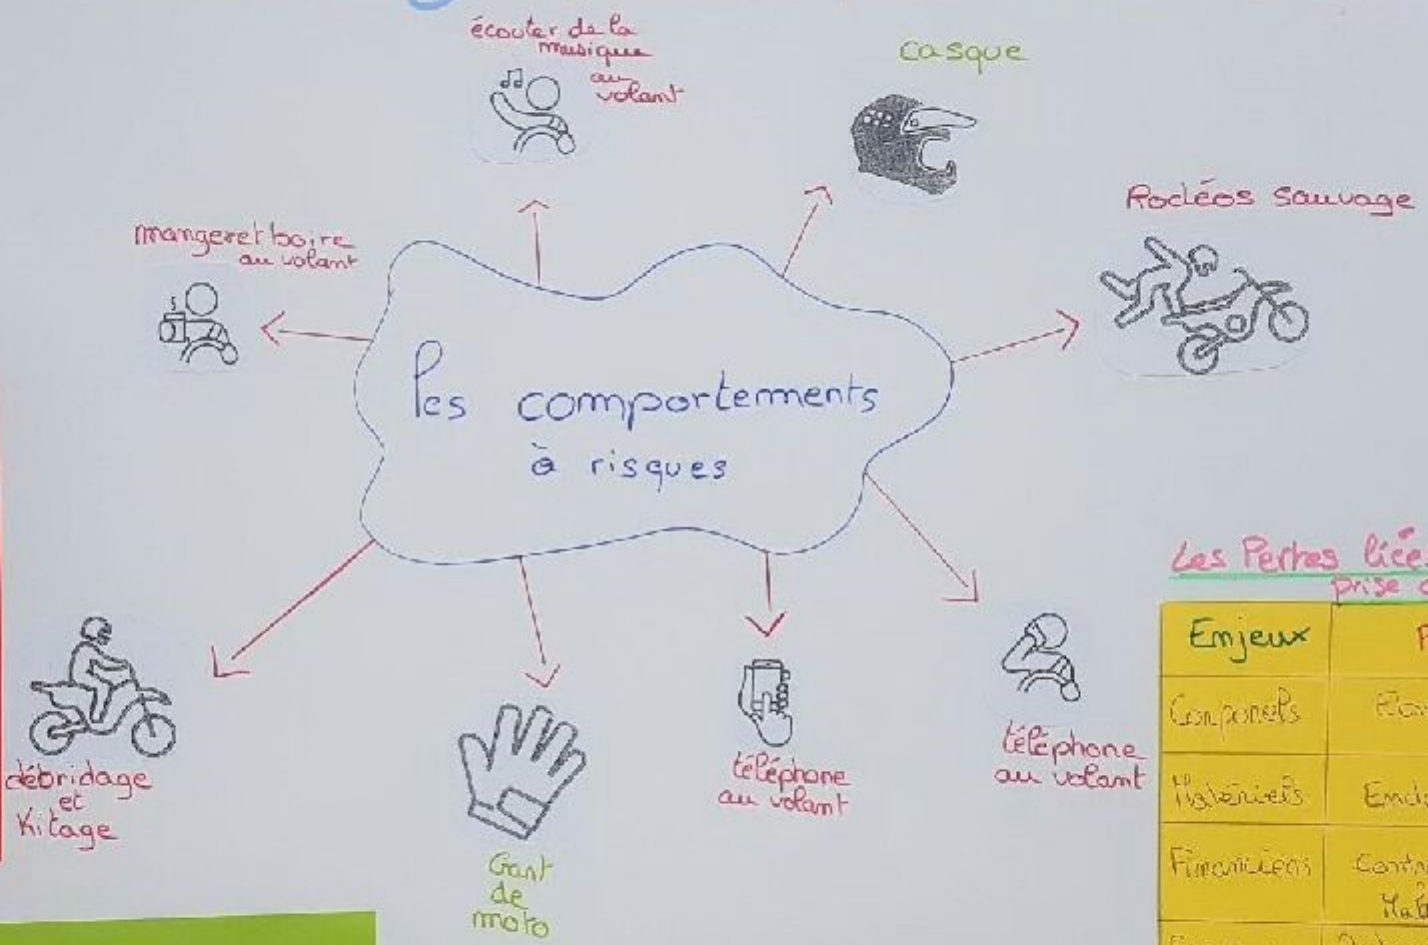 écouter de la
musique
au
volant
casque
Rodéos sauvage
manger et boire
au volant
les comportements
à risques
débridage
et
Kitage
Gant
de
moto
téléphone
au volant
téléphone
au volant
Les Pertes liées
prise
Enjeux
Corporels
Matériels
Financiers